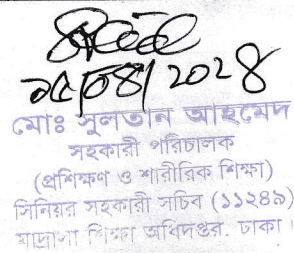 ২৫/০৪/২০২৪
মোঃ সুলতান আহমেদ
সহকারী পরিচালক
(প্রশিক্ষণ ও শারীরিক শিক্ষা)
সিনিয়র সহকারী সচিব (১১২৪৯)
মাদ্রাসা শিক্ষা অধিদপ্তর, ঢাকা।